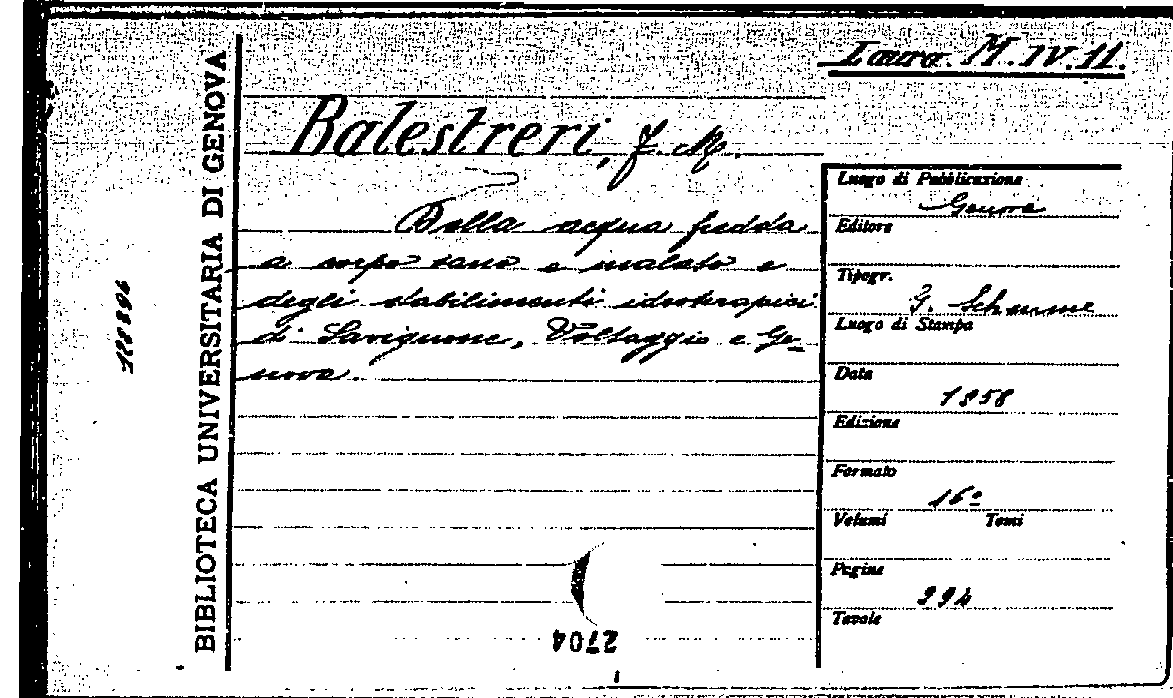 Laura. M. IV. 11.
BIBLIOTECA UNIVERSITARIA DI GENOVA
Balestreri, F. M.
Della acqua fredda
a corpo sano e malato e
degli stabilimenti idroterapici
di Savignone, Voltaggio e Ge-
nova.
Luogo di Pubblicazione
Genova
Editore
Tipogr.
G. Schenone
Luogo di Stampa
Data
1858
Edizione
Formato
16º
Volumi Tomi
Pagine
Tavole
2704